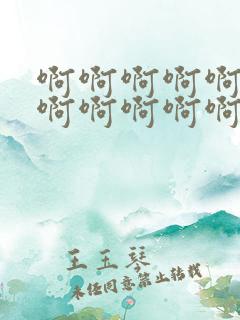 啊啊啊啊啊
啊啊啊啊啊
王玉琴
未经同意禁止转载